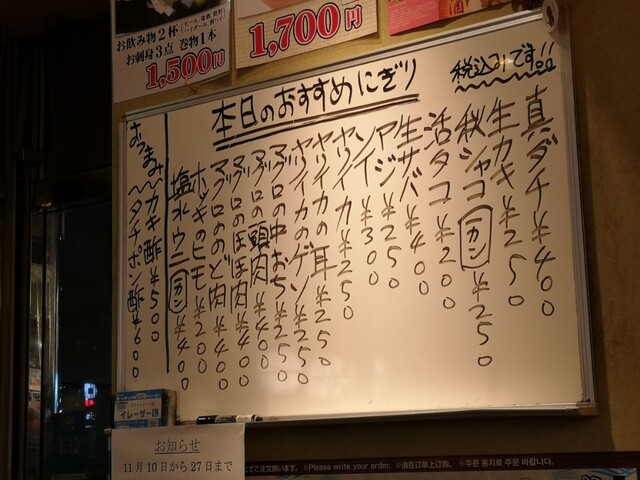 お飲み物2杯
お刺身3点 巻物1本
1,500円
1,700円
税込みです!!
本日のおすすめにぎり
真ダチ¥400
生カキ¥250
秋シャコ(カン)¥250
活タコ¥200
生サバ¥400
アジ¥250
ソイ¥300
ヤリイカ¥250
ヤリイカの耳¥250
ヤリイカのゲソ¥250
マグロの中おち¥250
マグロの頭肉¥400
マグロのほほ肉¥400
マグロののど肉¥400
ホッキのヒモ¥200
塩水ウニ(カン)¥400
おつまみ〜カキ酢¥500
〜タチポン酢¥600
イレーザー
お知らせ
11月10日から27日まで
てご注文願います。 ※Please write your order. ※请在订单上订购。 ※주문 용지로 주문 바랍니다.